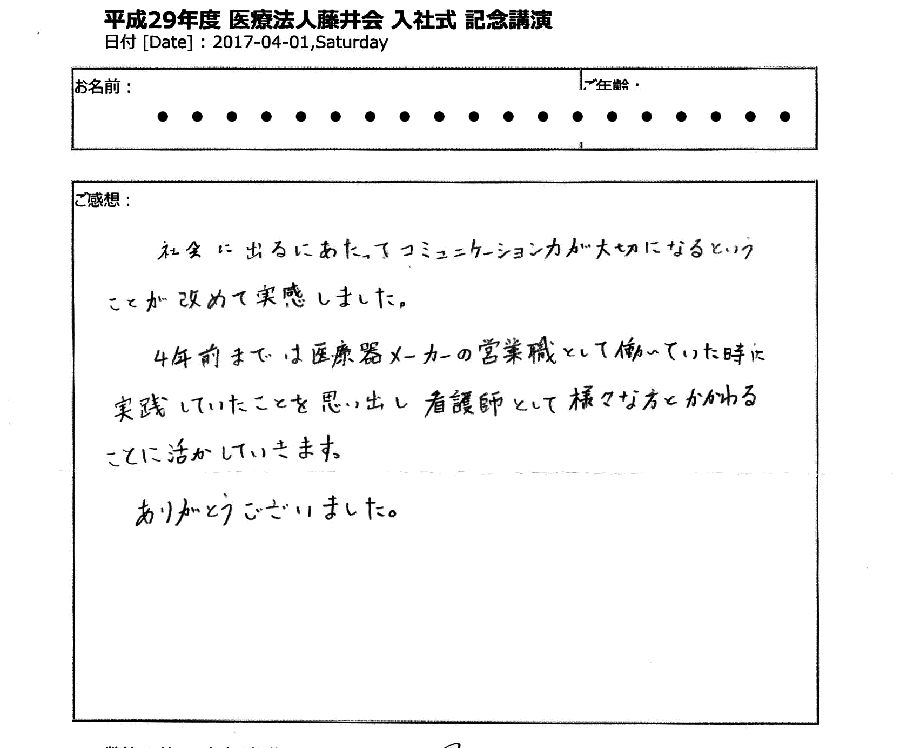 平成29年度 医療法人藤井会 入社式 記念講演
日付 [Date] : 2017-04-01,Saturday
お名前：
ご年齢：
ご感想：
社会に出るにあたってコミュニケーション力が大切になるという
ことが改めて実感しました。
4年前までは医療器メーカーの営業職として働いていた時に
実践していたことを思い出し看護師として様々な方とかかわる
ことに活かしていきます。
ありがとうございました。